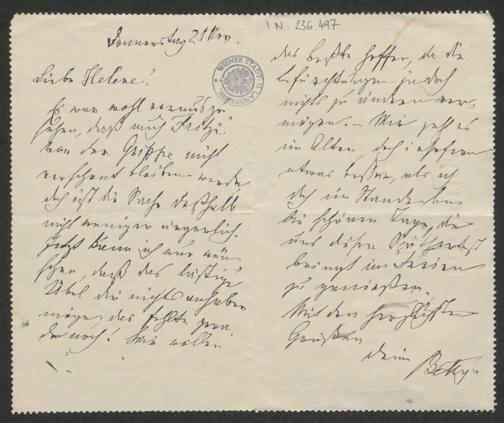 I.N. 236.497
WIENER STADT-
Donnerstag 21 Nov.
Liebe Helene!
Es war wohl vorauszu-
sehen, daß auch Fritzi
von der Grippe nicht
verschont bleiben werde
doch ist die Sache deßhalb
nicht weniger ärgerlich
Jetzt kann ich nur wün-
schen, daß das lästige
Übel dir nichts anhaben
möge, das fehlte gera-
de noch! Wir wollen
das beste hoffen, da die
Befürchtungen ja doch
nichts zu ändern ver-
mögen. – Mir geht es
im Alten doch insofern
etwas besser, als ich
doch im Stande bin
die schönen Tage, die
uns dieser Spätherbst
bringt im Freien
zu genießen.
Mit den herzlichsten
Grüßen
Deine
Betty